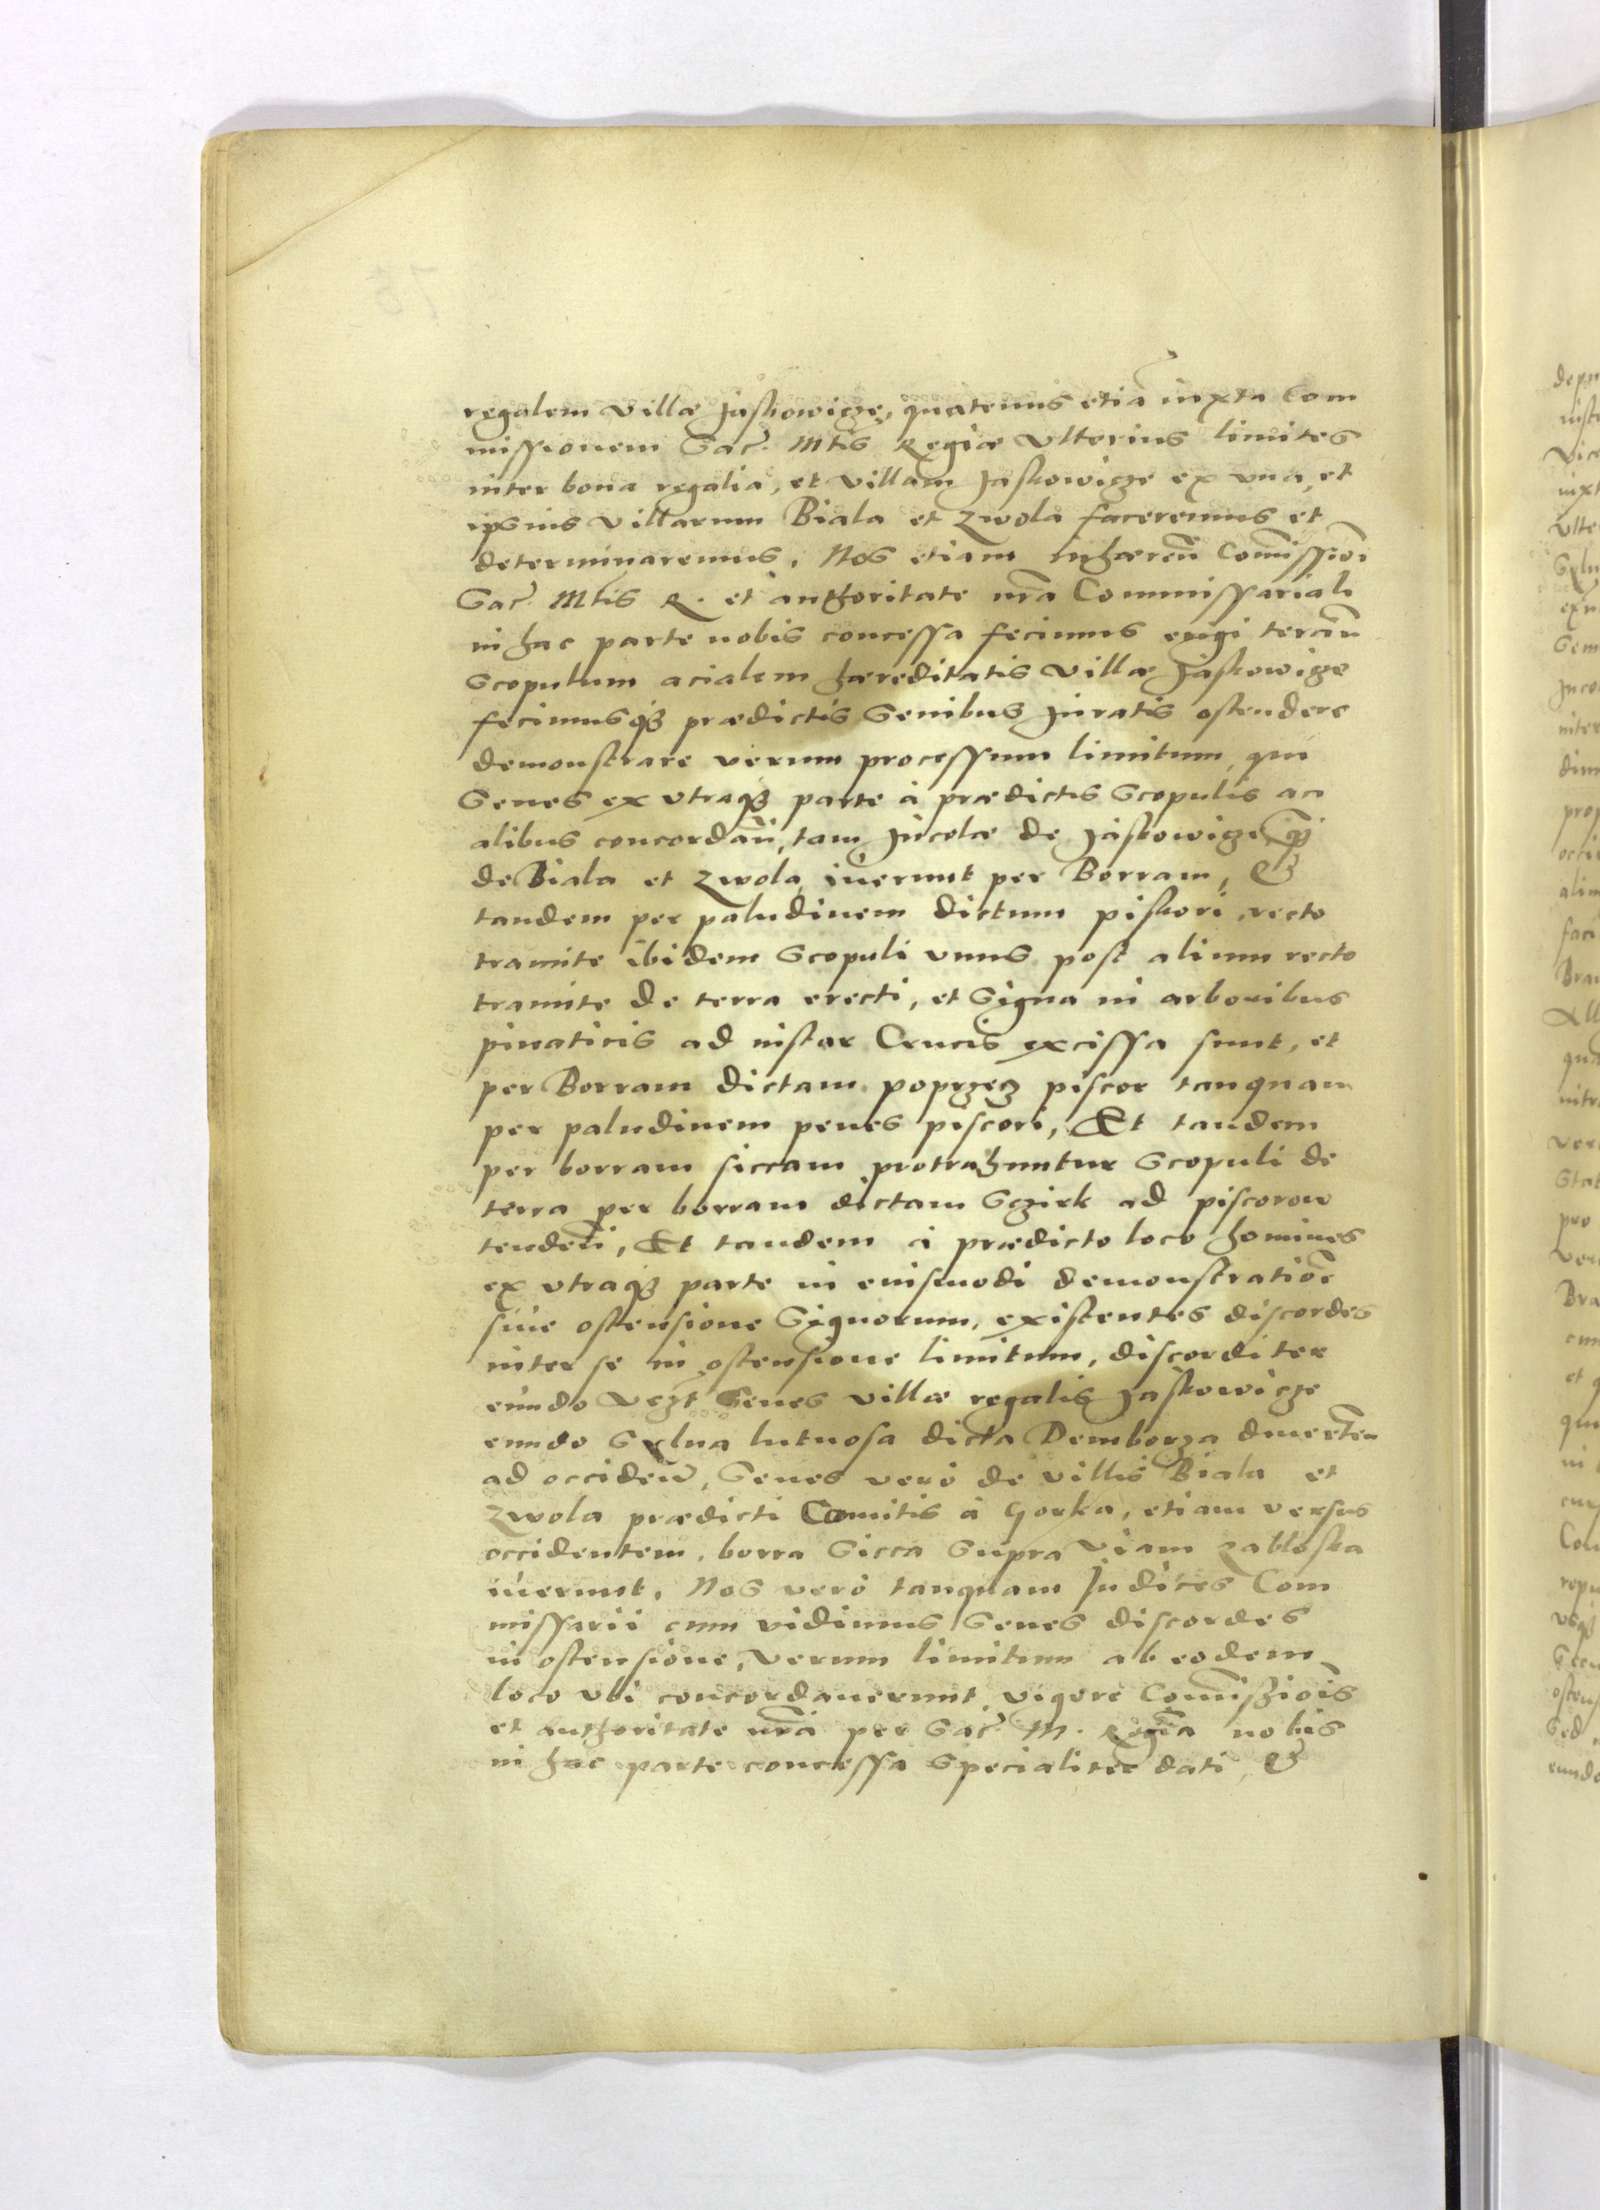 regalem villæ Jaskowicze, quatenus etiã iuxta Com
missionem Sac. Mtis Regiæ vlterius limites
inter bona regalia, et villam Jaskowicze ex vna, et
ipsius villarum Biala et Zwola faceremus et
determinaremus, Nos etiam inhæreñ Comissioi
Sac. Mtis R. et authoritate nrã Commissariali
in hac parte nobis concessa fecimus erigi terciũ
Scopulum acialem hæreditatis villæ Jaskowicze
fecimusq3 prædictis Senibus Juratis ostendere
demonstrare verum processum limitum, qui
Senes ex vtraq3 parte à prædictis Scopulis aci
alibus concordañ, tam Incolæ de Jaskowicze, q3
de Biala et Zwola iuerunt per Borram, &
tandem per paludinem dictum piskori, recto
tramite ibidem Scopuli vnus post alium recto
tramite de terra erecti, et Signa in arboribus
pinaticis ad instar Crucis excissa sunt, et
per Borram dictam poprzecz piscor tanquam
per paludinem penes piscori, Et tandem
per borram siccam protrahuntur Scopuli de
terra per borram dictam Sczirk ad piscorow
tendeñ, Et tandem à prædicto loco homines
ex vtraq3 parte in euismodi demonstratiõe
siue ostensione Signorum, existentes discordes
inter se in ostensione limitum, discorditer
eundo vczt Senes villæ regalis Jaskowicze
eundo Sylua lutuosa dicta Demborza diuerteñ
ad occideñ, Senes verò de villis Biala et
Zwola prædicti Comitis à Gorka, etiam versus
occidentem, borra Sicca Supra viam zabloska
iuerunt, Nos verò tanquam Judices Com
missarii cum vidimus Senes discordes
in ostensione, verum limitum ab eodem
loco vbi concordauerunt, vigore Comissiois
et authoritate nrã per Sac. M. Regia nobis
in hac parte concessa Specialiter dati, &